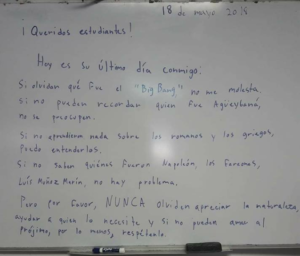 18 de mayo 2015
¡Queridos estudiantes!
Hoy es su último día conmigo.
Si olvidan qué fue el "Big Bang" no me molesta
si no pueden recordar quien fue Agüeybaná,
no se preocupen.
Si no aprendieron nada sobre los romanos y los griegos,
puedo entenderlos.
Si no saben quiénes fueron Napoleón, los faraones,
Luis Muñoz Marín, no hay problema.
Pero por favor, NUNCA olviden apreciar la naturaleza,
ayudar a quien lo necesite y si no pueden amar al
prójimo, por lo menos, respétenlo.